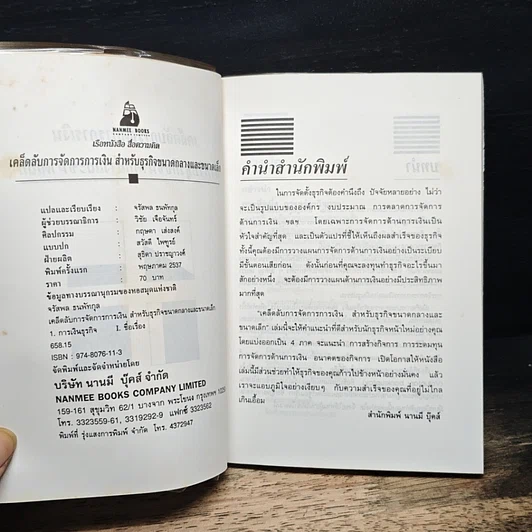 NANMEE BOOKS
COMPANY LIMITED
เรือหนังสือ สื่อความคิด
เคล็ดลับการจัดการการเงิน สำหรับธุรกิจขนาดกลางและขนาดเล็ก
แปลและเรียบเรียง : จรัสพล ธนพัทกุล
ผู้ช่วยบรรณาธิการ : วิชัย เจือจันทร์
ศิลปกรรม : กฤษดา เส่งสงค์
แบบปก : สวัสดิ์ ไพฑูรย์
ฝ่ายผลิต : สุธิดา ปราชญาวงศ์
พิมพ์ครั้งแรก : พฤษภาคม 2537
ราคา : 70 บาท
ข้อมูลทางบรรณานุกรมของหอสมุดแห่งชาติ
จรัสพล ธนพัทกุล
เคล็ดลับการจัดการการเงิน สำหรับธุรกิจขนาดกลางและขนาดเล็ก
1. การเงินธุรกิจ 1. ชื่อเรื่อง
658.15
ISBN : 974-8076-11-3
จัดพิมพ์และจัดจำหน่ายโดย
บริษัท นานมี บุ๊คส์ จำกัด
NANMEE BOOKS COMPANY LIMITED
159-161 สุขุมวิท 62/1 บางจาก พระโขนง กรุงเทพฯ
โทร. 3323559-61, 3319292-9 แฟกซ์ 3323562
พิมพ์ที่ รุ่งแสงการพิมพ์ จำกัด โทร. 4372947
คำนำสำนักพิมพ์
ในการจัดตั้งธุรกิจต้องคำนึงถึง ปัจจัยหลายอย่าง ไม่ว่า
จะเป็นรูปแบบขององค์กร งบประมาณ การตลาดการจัดการ
ด้านการเงิน ฯลฯ โดยเฉพาะการจัดการด้านการเงินเป็น
หัวใจสำคัญที่สุด และเป็นตัวแปรที่ชี้ให้เห็นถึงผลสำเร็จของธุรกิจ
ทั้งนี้คุณต้องมีการวางแผนการจัดการด้านการเงินอย่างเป็นระเบียบ
มีขั้นตอนเสียก่อน ดังนั้นก่อนที่คุณจะลงทุนทำธุรกิจอะไรขึ้นมา
สักอย่างหนึ่ง จะต้องมีการวางแผนด้านการเงินอย่างมีประสิทธิภาพ
มากที่สุด
"เคล็ดลับการจัดการการเงิน สำหรับธุรกิจขนาดกลางและ
ขนาดเล็ก" เล่มนี้จะให้คำแนะนำที่ดีสำหรับนักธุรกิจหน้าใหม่อย่างคุณ
โดยแบ่งออกเป็น 4 ภาค จะแนะนำ การสร้างกิจการ การระดมทุน
การจัดการด้านการเงิน อนาคตของกิจการ เปิดโอกาสให้หนังสือ
เล่มนี้มีส่วนช่วยทำให้ธุรกิจของคุณก้าวไปข้างหน้าอย่างมั่นคง แล้ว
เราจะแอบภูมิใจอย่างเงียบๆ กับความสำเร็จของคุณที่อยู่ไม่ไกล
เกินเอื้อม
สำนักพิมพ์ นานมี บุ๊คส์